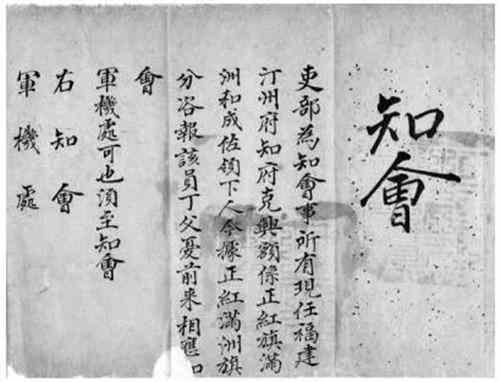 知會
吏部為知會事所有現任福建
汀州府知府克興額係正紅旗滿
洲和成佐領下人今據正紅滿洲旗
分咨報該員丁父憂前来相應知
會
軍機處可也須至知會
右知會
軍機處